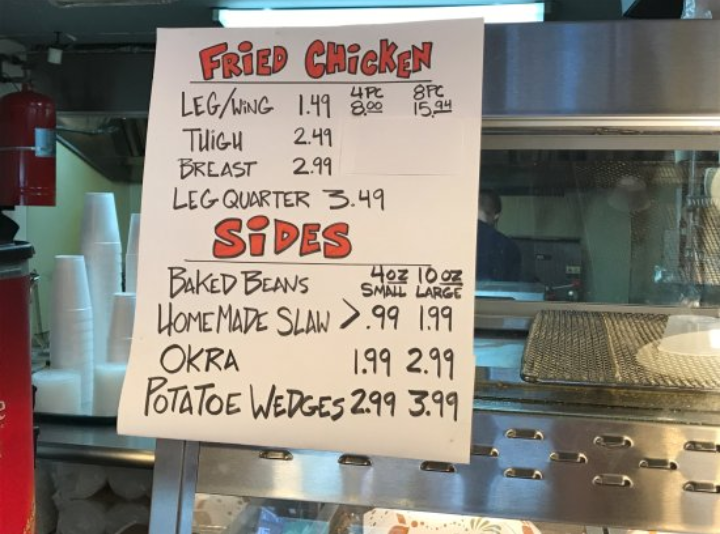 FRIED CHICKEN
4PC 8PC
LEG/WING 1.49 8.00 15.94
THIGH 2.49
BREAST 2.99
LEG QUARTER 3.49
SIDES
BAKED BEANS 4OZ 10OZ
SMALL LARGE
HOMEMADE SLAW > .99 1.99
OKRA 1.99 2.99
POTATOE WEDGES 2.99 3.99